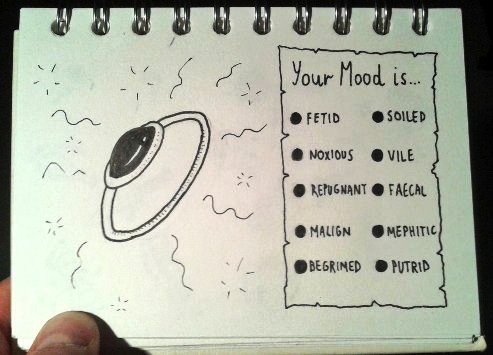 Your Mood is...
FETID
SOILED
NOXIOUS
VILE
REPUGNANT
FAECAL
MALIGN
MEPHITIC
BEGRIMED
PUTRID